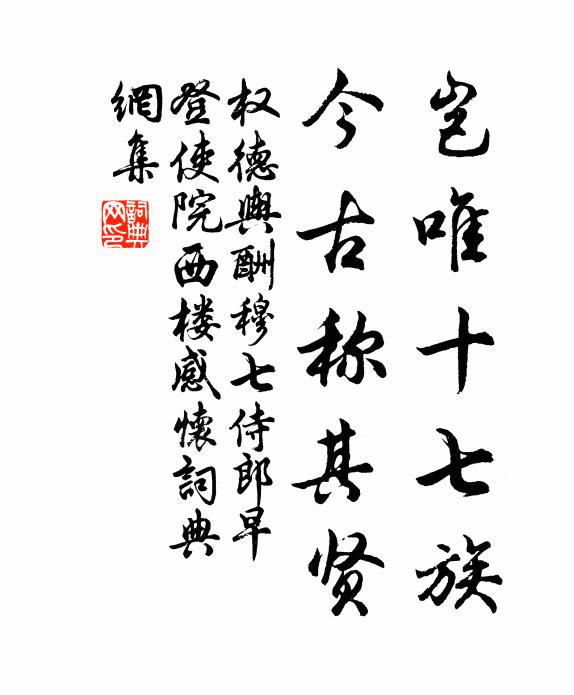 岂唯十七族
今古称其贤
权德舆酬穆七侍郎早
登使院西楼感怀詞典
網集
詞典
网印